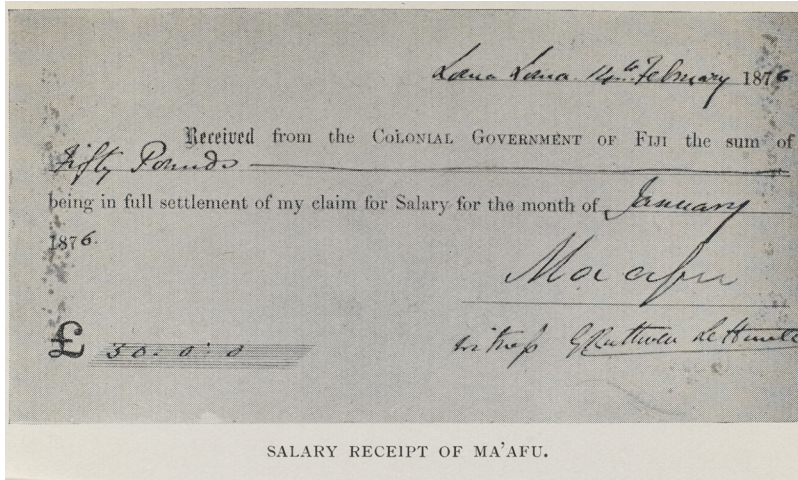 Loma Loma 14th February 1876
Received from the COLONIAL GOVERNMENT OF FIJI the sum of
Fifty Pounds
being in full settlement of my claim for Salary for the month of January
1876.
Maafu
£ 50. 0. 0
witness G Ruthven Le Hunte
SALARY RECEIPT OF MA'AFU.